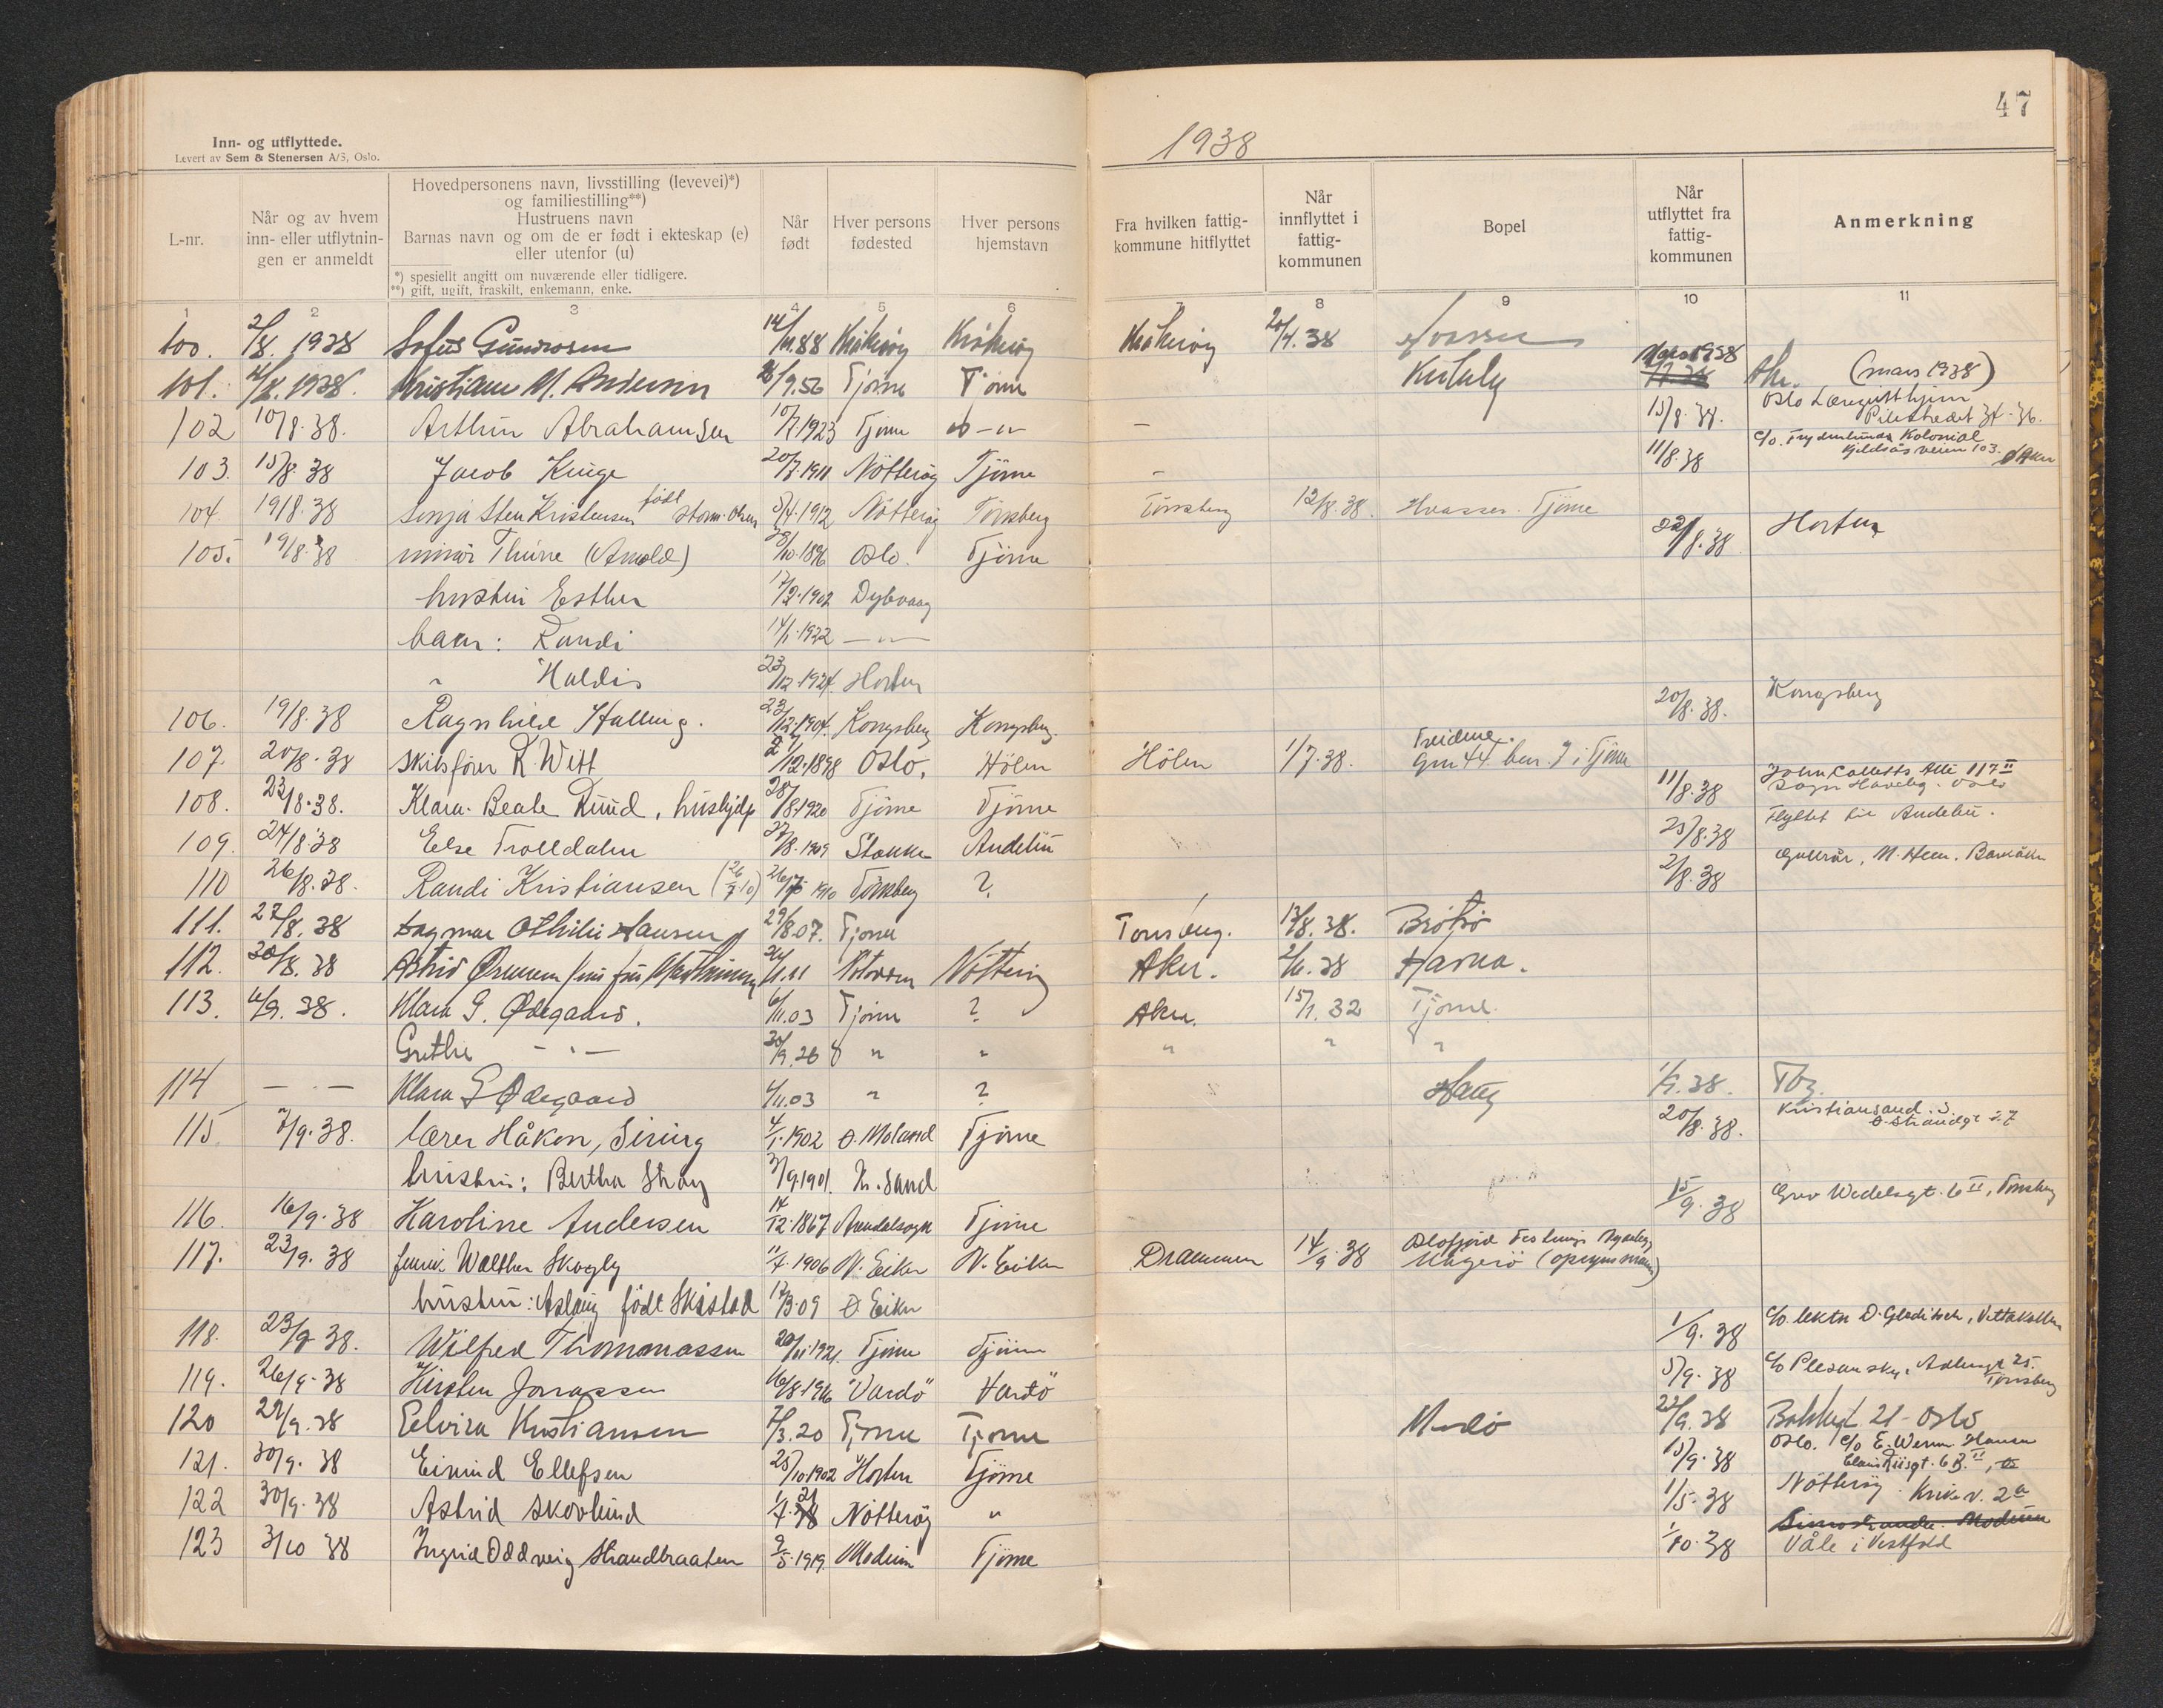 47
Inn- og utflyttede.
Levert av Sem & Stenersen A/S, Oslo.
1938
L-nr.
Når og av hvem inn- eller utflytnin-gen er anmeldt
Hovedpersonens navn, livsstilling (levevei)*)
og familiestilling**)
Hustruens navn
Barnas navn og om de er født i ekteskap (e)
eller utenfor (u)
*) spesiellt angitt om nuværende eller tidligere.
**) gift, ugift, fraskilt, enkemann, enke.
Når født
Hver persons fødested
Hver persons hjemstavn
Fra hvilken fattig-kommune hitflyttet
Når innflyttet i fattig-kommunen
Bopel
Når utflyttet fra fattig-kommunen
Anmerkning
1 2 3 4 5 6 7 8 9 10 11
100. 2/8. 1938 Sofus Gundrosen 14/11.88 Kråkerøy Kråkerøy Kråkerøy 20/4.38
101. 4/8. 1938. Kristiane M. Andersen 26/9.56 Tjøme Tjøme Mars 1938 (mars 1938)
102 10/8.38. Arthur Abrahamsen 10/7 1923 Tjøme - " - 15/8.38. Oslo
Pilestredet 34-36.
103. 15/8.38 Jacob Kruge 20/7.1911 Nøtterøy Tjöme 11/8.38 c/o. Kolonial
103. Aker
104. 19/8.38 Sonja Sten Kristensen født Storm-Olsen 5/4.1912 Nötteröy Tönsberg Tönsberg 12/8.38. Hvasser. Tjöme
105. 19/8.38 minör Thune (Arnold) 28/10.1896 Oslo. Tjöme 22/8.38 Horten
hustru Esther 17/2.1902 Dybvaag
barn: Randi 14/1.1922 - " -
" Haldis 23/12.1924. Horten
106. 19/8.38 Ragnhild Halling. 23/12.1904. Kongsberg Kongsberg. 20/8.38. Kongsberg
107. 20/8.38 skibsfører R. Witt /12.1898 Oslo. Hölen Hölen 1/7.38. Gnr 44 bnr. 7 i Tjöme
108. 23/8.38. Klara Beate Ruud, hushjelp 28/8 1920 Tjöme Tjöme 11/8.38 John Colletts Alle 117 II
109. 24/8.38 Else Trolldalen 27/8.1909 Stokke Andebu 25/8.38 Flyttet til Andebu.
110 26/8.38. Randi Kristiansen (26/7 10) 1910 Tönsberg ? 2/8.38
111. 27/8.38 Dagmar Othilie Hansen 29/8 07. Tjøme Tønsberg. 13/8.38. Brøtsø
112. 30/8.38 Astrid Nøtterøy Aker. 38
113. 38. Klara G. Ødegaard. 6/11.03 Tjøme ? Aker. 15/1.32 Tjøme.
Grethe - " - 30/9.26 " " " " "
114 - " - Klara G Ødegaard 6/11.03 " ? Haug 38. Tbg.
115 7/9.38. lærer Håkon, Siring 4/1.1902 Ø. Moland Tjöme 20/8.38. Kristiansand. S
hustru: Bertha Stray 3/9.1901. Kr. Sand
116. 16/9.38 Karoline Andersen 14/12.1867 Arendalsogn Tjöme 15/9.38 Grev Wedelsgt. 6 II, Tönsberg
117. 23/9.38 Walther Skogly 11/4.1906 N. Eiker N. Eiker Drammen 14/9.38 Oslofjord Festnings
hustru: Aslaug födt 09 Ö Eiker
118. 23/9 38. Wilfred Thommassen 20/11.1921. Tjöme Tjöme 1/9.38 c/o. lektor D. Gleditsch, Vettakollen
119. 26/9.38 Kirsten Jonassen 16/8.1916 Vardö Vardö 5/9.38 c/o Plesansky,
Tönsberg
120 29/9.38 Elvira Kristiansen 7/3.20 Tjøme Tjøme 22/9.38 21 - Oslo
121. 30/9.38 Eivind Ellefsen 25/10.1902 Horten Tjöme 15/9.38 Oslo. c/o E. Hansen
122 30/9.38 Astrid Skovlund 1/4. 21 Nötteröy " 1/5.38 Nötteröy.
123 3/10 38 Ingrid Oddveig Strandbraaten 9/5.1919. Modum Tjöme 1/10.38 Simostranda. Modum
Våle i Vestfold